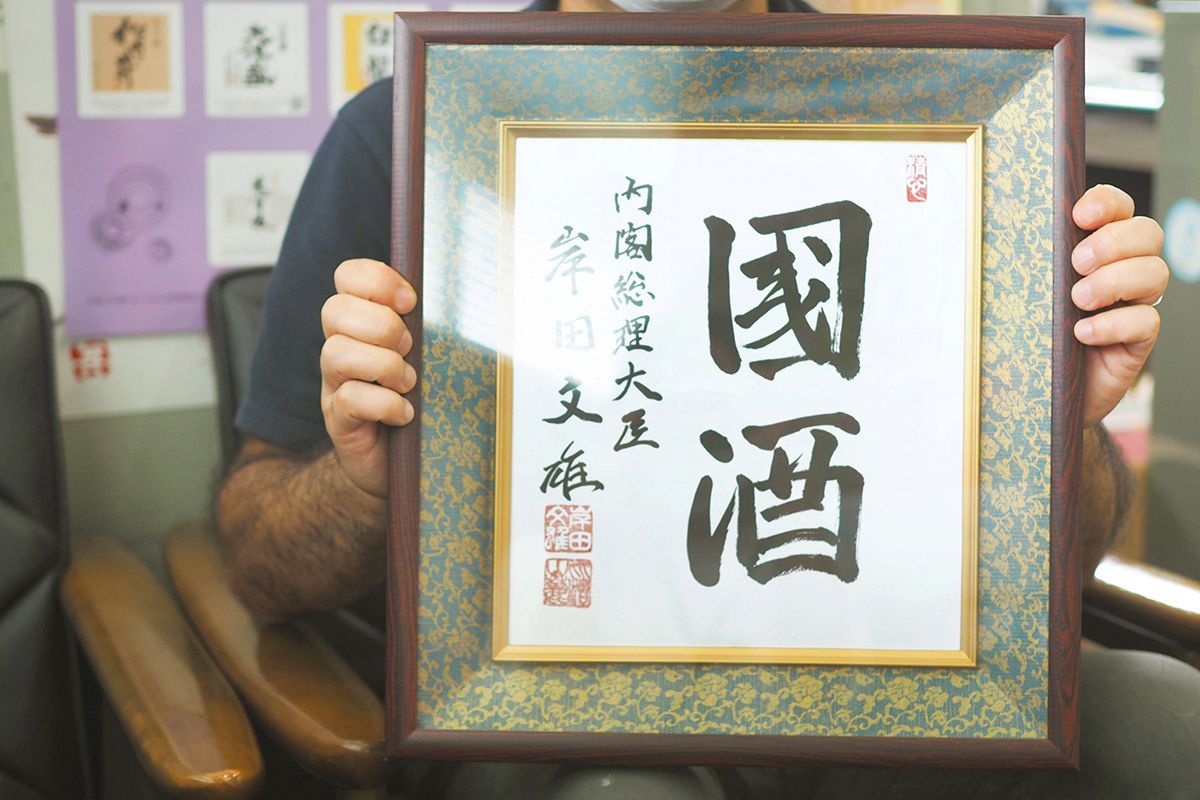 國酒
内閣総理大臣
岸田文雄
岸田
文雄